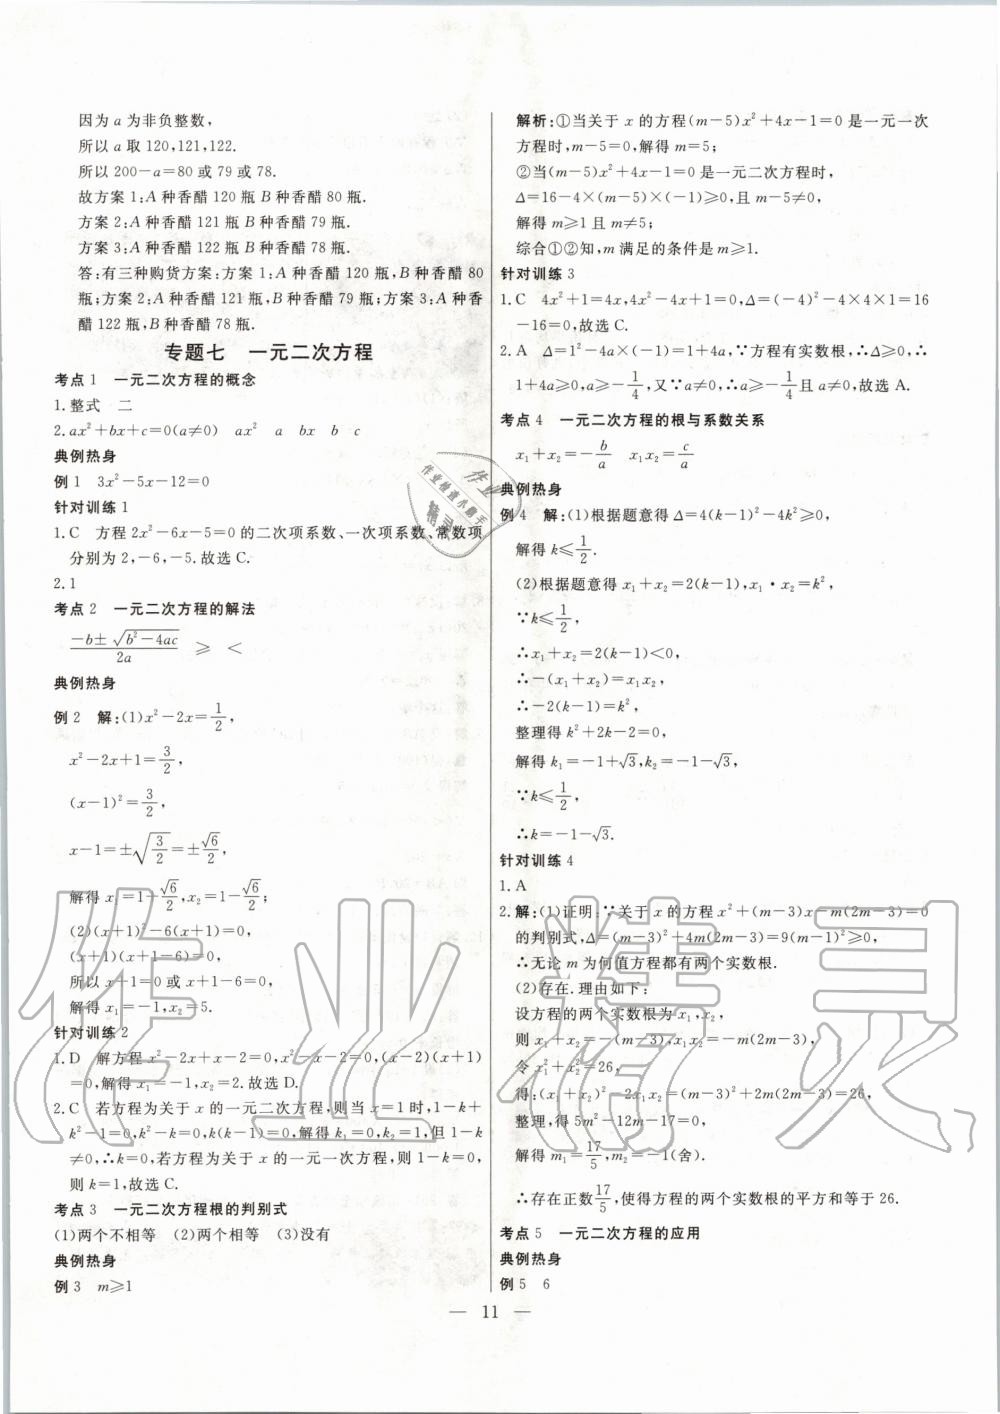 因为 a 为非负整数,
所以 a 取 120,121,122.
所以 200－a＝80 或 79 或 78.
故方案 1:A 种香醋 120 瓶 B 种香醋 80 瓶.
方案 2:A 种香醋 121 瓶 B 种香醋 79 瓶.
方案 3:A 种香醋 122 瓶 B 种香醋 78 瓶.
答:有三种购货方案:方案 1:A 种香醋 120 瓶,B 种香醋 80
瓶;方案 2:A 种香醋 121 瓶,B 种香醋 79 瓶;方案 3:A 种香
醋 122 瓶,B 种香醋 78 瓶.
专题七　一元二次方程
考点 1　一元二次方程的概念
1.整式　二
2.ax²＋bx＋c＝0(a≠0)　ax²　a　bx　b　c
典例热身
例 1　3x²－5x－12＝0
针对训练 1
1.C　方程 2x²－6x－5＝0 的二次项系数、一次项系数、常数项
分别为 2,－6,－5.故选 C.
2.1
考点 2　一元二次方程的解法
(－b±√(b²－4ac))/2a　≥　＜
典例热身
例 2　解:(1)x²－2x＝1/2,
x²－2x＋1＝3/2,
(x－1)²＝3/2,
x－1＝±√(3/2)＝±√6/2,
解得 x₁＝1＋√6/2,x₂＝1－√6/2;
(2)(x＋1)²－6(x＋1)＝0,
(x＋1)(x＋1－6)＝0,
所以 x＋1＝0 或 x＋1－6＝0,
解得 x₁＝－1,x₂＝5.
针对训练 2
1.D　解方程 x²－2x＋x－2＝0,x²－x－2＝0,(x－2)(x＋1)
＝0,解得 x₁＝－1,x₂＝2.故选 D.
2.C　若方程为关于 x 的一元二次方程,则当 x＝1 时,1－k＋
k²－1＝0,k²－k＝0,k(k－1)＝0,解得 k₁＝0,k₂＝1,但 1－k
≠0,∴k＝0;若方程为关于 x 的一元一次方程,则 1－k＝0,
则 k＝1,故选 C.
考点 3　一元二次方程根的判别式
(1)两个不相等　(2)两个相等　(3)没有
典例热身
例 3　m≥1
解析:①当关于 x 的方程(m－5)x²＋4x－1＝0 是一元一次
方程时,m－5＝0,解得 m＝5;
②当(m－5)x²＋4x－1＝0 是一元二次方程时,
Δ＝16－4×(m－5)×(－1)≥0,且 m－5≠0,
解得 m≥1 且 m≠5;
综合①②知,m 满足的条件是 m≥1.
针对训练 3
1.C　4x²＋1＝4x,4x²－4x＋1＝0,Δ＝(－4)²－4×4×1＝16
－16＝0,故选 C.
2.A　Δ＝1²－4a×(－1)＝1＋4a,∵方程有实数根,∴Δ≥0,∴
1＋4a≥0,a≥－1/4,又∵a≠0,∴a≥－1/4且 a≠0,故选 A.
考点 4　一元二次方程的根与系数关系
x₁＋x₂＝－b/a　x₁x₂＝c/a
典例热身
例 4　解:(1)根据题意得 Δ＝4(k－1)²－4k²≥0,
解得 k≤1/2.
(2)根据题意得 x₁＋x₂＝2(k－1),x₁·x₂＝k²,
∵k≤1/2,
∴x₁＋x₂＝2(k－1)＜0,
∴－(x₁＋x₂)＝x₁x₂,
∴－2(k－1)＝k²,
整理得 k²＋2k－2＝0,
解得 k₁＝－1＋√3,k₂＝－1－√3,
∵k≤1/2,
∴k＝－1－√3.
针对训练 4
1.A
2.解:(1)证明:∵关于 x 的方程 x²＋(m－3)x－m(2m－3)＝0
的判别式,Δ＝(m－3)²＋4m(2m－3)＝9(m－1)²≥0,
∴无论 m 为何值方程都有两个实数根.
(2)存在.理由如下:
设方程的两个实数根为 x₁,x₂,
则 x₁＋x₂＝－(m－3),x₁x₂＝－m(2m－3),
令 x₁²＋x₂²＝26,
得:(x₁＋x₂)²－2x₁x₂＝(m－3)²＋2m(2m－3)＝26,
整理,得 5m²－12m－17＝0,
解得 m₁＝17/5,m₂＝－1(舍).
∴存在正数17/5,使得方程的两个实数根的平方和等于 26.
考点 5　一元二次方程的应用
典例热身
例 5　6
— 11 —
作业精灵
作业
作业检查小助手
精灵